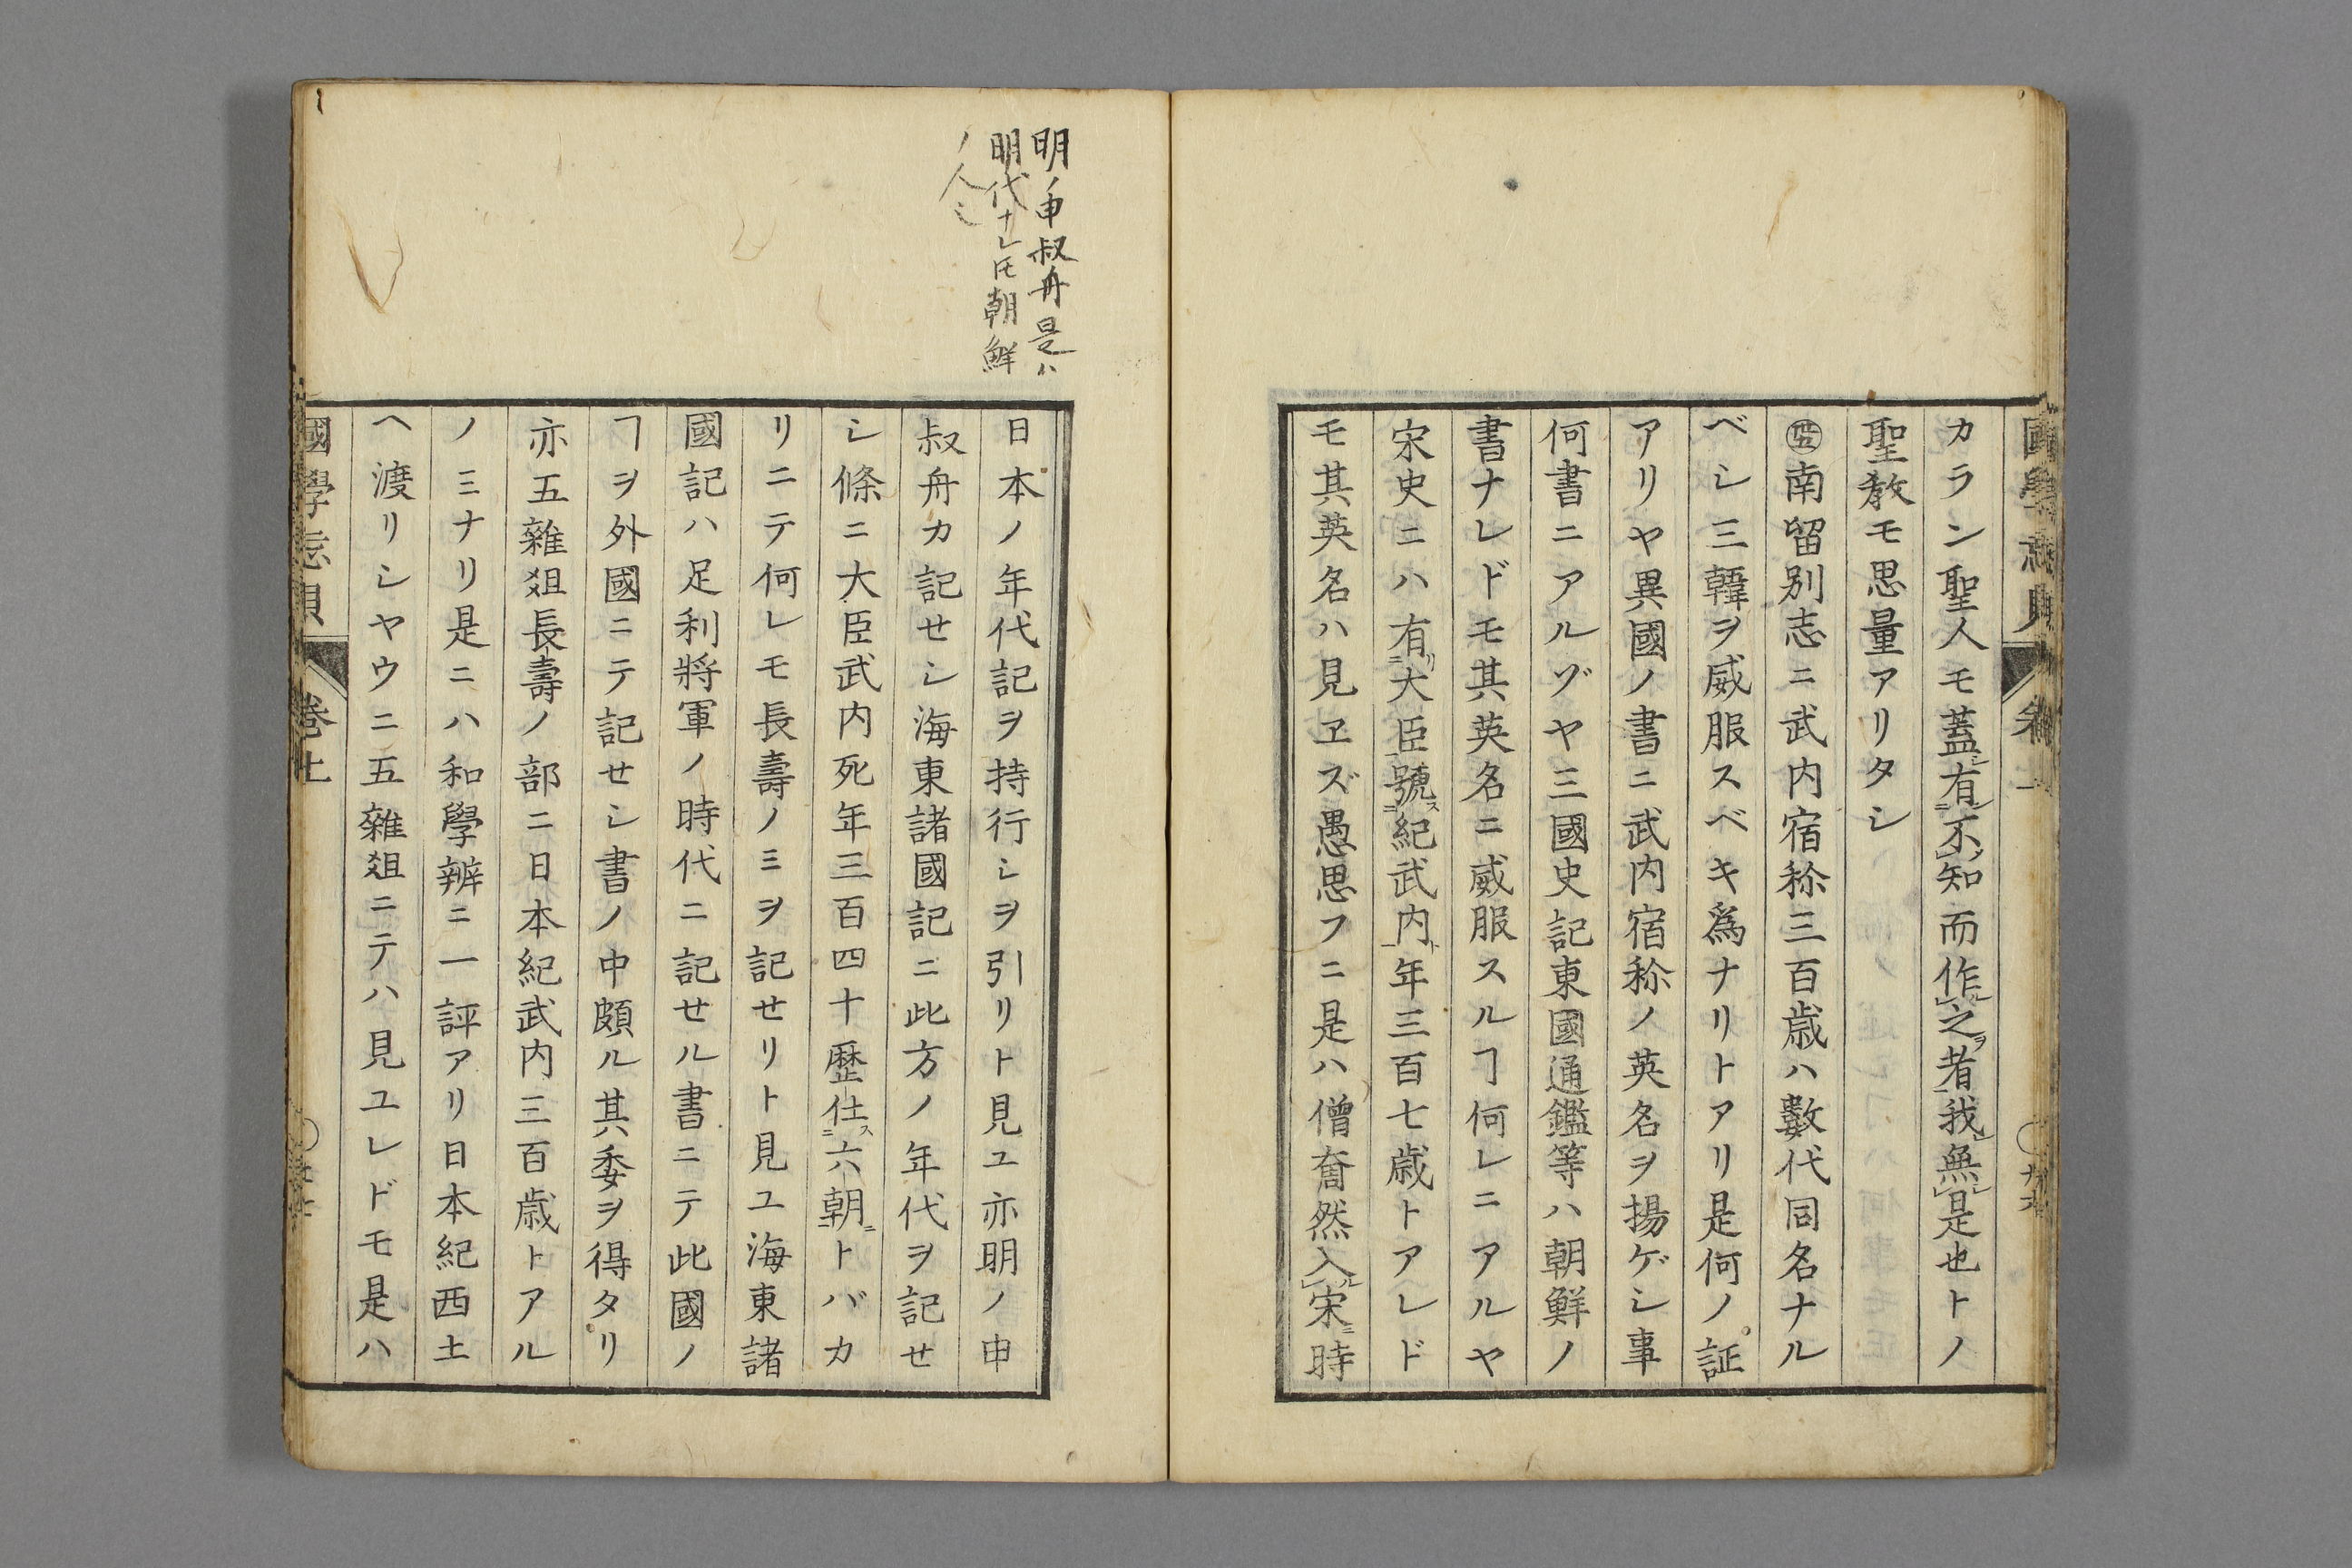 カラン聖人モ蓋有不知而作之者我無是也トノ
聖教モ思量アリタシ
㊄南留別志ニ武内宿祢三百歳ハ數代同名ナル
ベシ三韓ヲ威服スベキ為ナリトアリ是何ノ証
アリヤ異國ノ書ニ武内宿祢ノ英名ヲ揚ゲシ事
何書ニアルゾヤ三國史記東國通鑑等ハ朝鮮ノ
書ナレドモ其英名ニ威服スルヿ何レニアルヤ
宋史ニハ有大臣號紀武内年三百七歳トアレド
モ其英名ハ見ヱズ愚思フニ是ハ僧奝然入宋時
明ノ申叔舟是ハ
明代ナレ𪜈朝鮮
ノ人也
日本ノ年代記ヲ持行シヲ引リト見ユ亦明ノ申
叔舟カ記せシ海東諸國記ニ此方ノ年代ヲ記せ
シ條ニ大臣武内死年三百四十歴仕六朝トバカ
リニテ何レモ長壽ノミヲ記せリト見ユ海東諸
國記ハ足利將軍ノ時代ニ記せル書ニテ此國ノ
ヿヲ外國ニテ記せシ書ノ中頗ル其委ヲ得タリ
亦五雜爼長壽ノ部ニ日本紀武内三百歳トアル
ノミナリ是ニハ和學辨ニ一評アリ日本紀西土
ヘ渡リシヤウニ五雜爼ニテハ見ユレドモ是ハ
國學忘貝 卷上